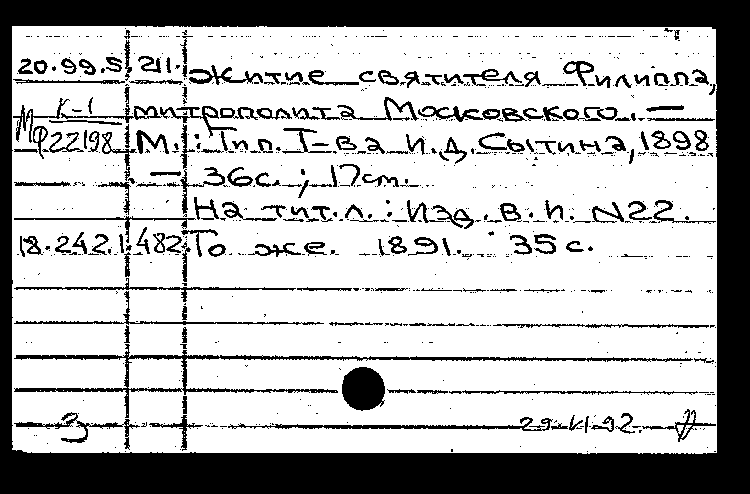 20.99.5.211. Житие святителя Филиппа,
К-1 митрополита Московского. —
МФ22198 М.: Тип. Т-ва И.Д. Сытина, 1898
. — 36с.; 17см.
На тит.л.: Изд. В.И. N22.
18.242.1.482. То же. 1891. 35с.
3 29.VI.92.